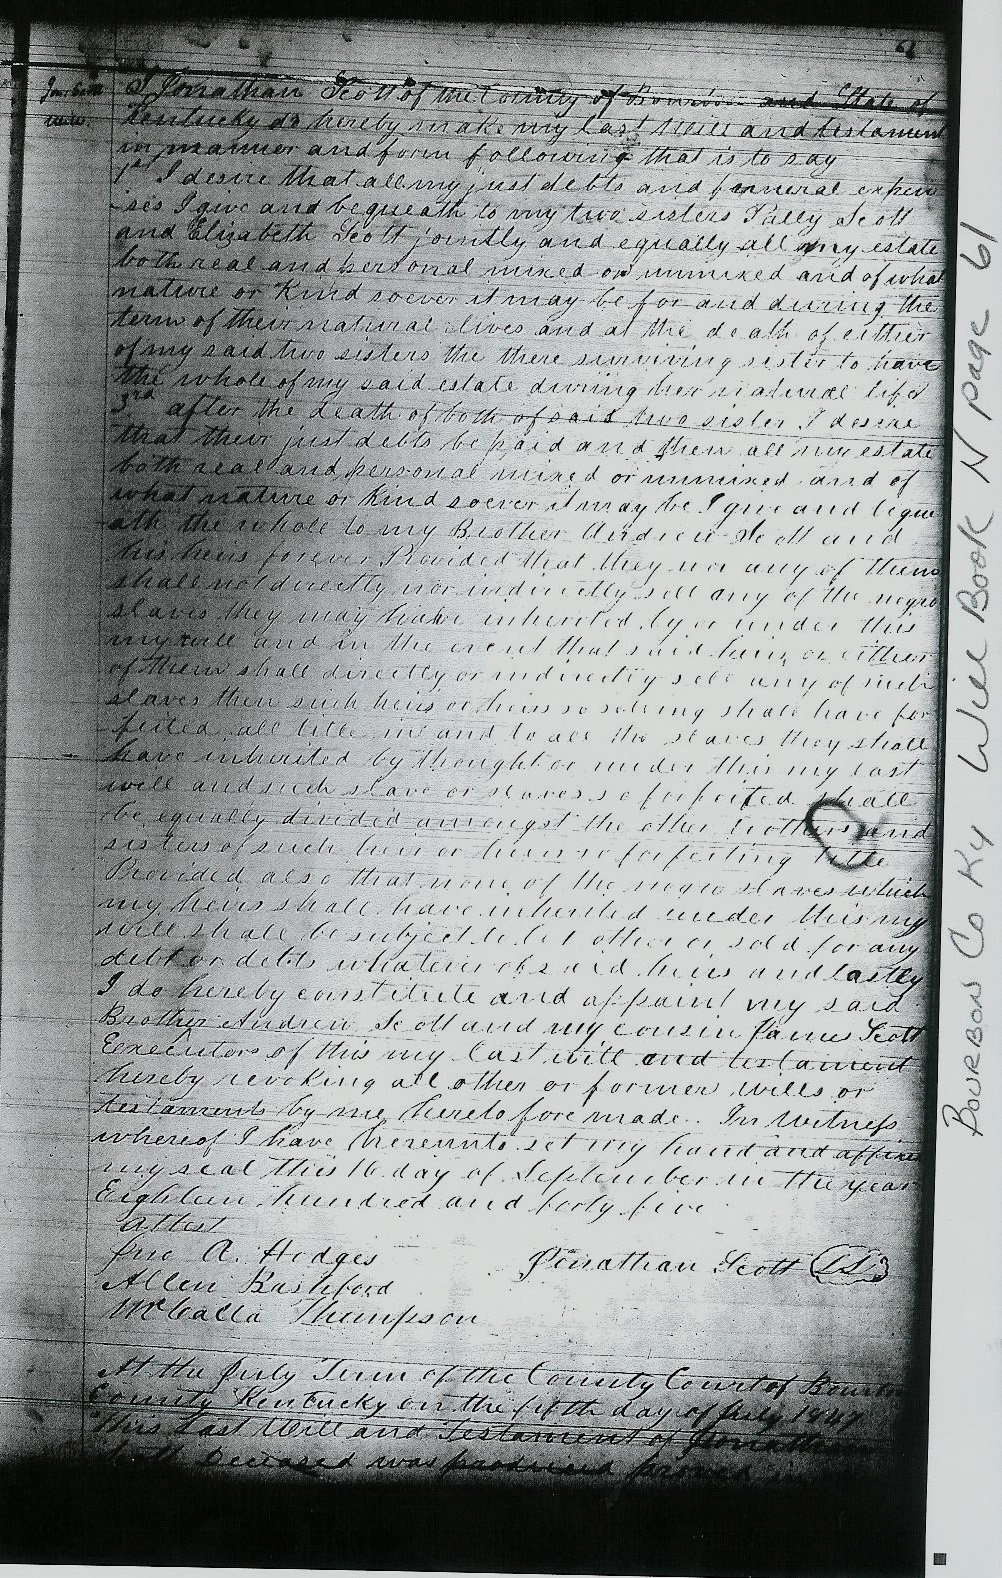 61
Jon. Scott
Will
I Jonathan Scott of the County of Bourbon and State of
Kentucky do hereby make my last Will and testament
in manner and form following that is to say
1st I desire that all my just debts and funeral expen
-ses I give and bequeath to my two sisters Polly Scott
and Elizabeth Scott jointly and equally all my estate
both real and personal mixed or unmixed and of what
nature or Kind soever it may be for and during the
term of their natural lives and at the death of either
of my said two sisters the there surviving sister to have
the whole of my said estate during her natural life
3rd after the death of both of said two sister I desire
that their just debts be paid and then all my estate
both real and personal mixed or unmixed and of
what nature or Kind soever it may be I give and beque
ath the whole to my Brother Andrew Scott and
his heirs forever Provided that they nor any of them
shall not directly nor indirectly sell any of the negro
slaves they may have inherited by or under this
my will and in the event that said heirs or either
of them shall directly or indirectly sell any of such
slaves then such heirs or heirs so selling shall have for
feited all title in and to all the slaves they shall
have inherited by thought or under this my last
will and such slave or slaves so forfeited shall
be equally divided amongst the other brothers and
sisters of such heir or heirs so forfeiting title
Provided also that none of the negro slaves which
my heirs shall have inherited under this my
will shall be subject to be sold for any
debt or debts whatever of said heirs and lastly
I do hereby constitute and appoint my said
Brother Andrew Scott and my cousin James Scott
Executors of this my last will and testament
hereby revoking all other or former wills or
testaments by me heretofore made. In Witness
whereof I have hereunto set my hand and affixed
my seal this 16 day of September in the year
Eighteen hundred and forty five
Attest
Jno A. Hodges
Jonathan Scott (LS)
Allen Bashford
McCalla Thompson
At the July Term of the County Court of Bourbon
County Kentucky on the fifth day of July 1847
This Last Will and Testament of Jonathan
Scott Deceased was produced proved
BOURBON CO KY WILL BOOK N page 61